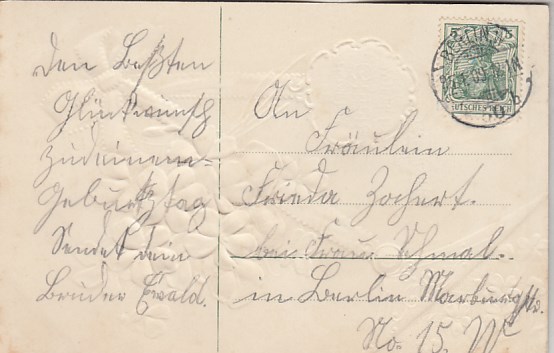 Den Beßten
Glückwunsch
zu deinem
Geburtztag
Sendet dein
Bruder Ewald.
An
Fräulein
Frieda Zochert.
bei Frau Schmal.
in Berlin Marburgstr.
No. 15. W
BERLIN W
50
5
DEUTSCHES REICH